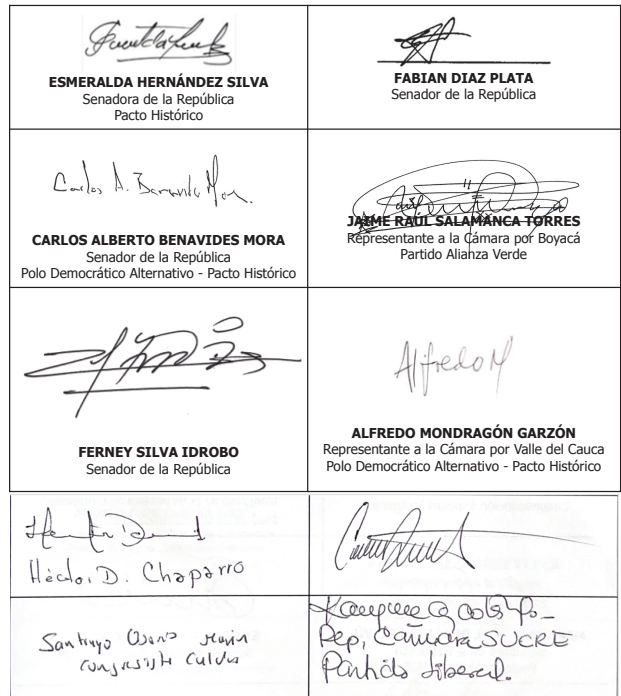 ESMERALDA HERNÁNDEZ SILVA
Senadora de la República
Pacto Histórico
FABIAN DIAZ PLATA
Senador de la República
Carlos A. Benavides Mora
CARLOS ALBERTO BENAVIDES MORA
Senador de la República
Polo Democrático Alternativo - Pacto Histórico
JAIME RAÚL SALAMANCA TORRES
Représentante a la Cámara por Boyacá
Partido Alianza Verde
FERNEY SILVA IDROBO
Senador de la República
Alfredo M
ALFREDO MONDRAGÓN GARZÓN
Representante a la Cámara por Valle del Cauca
Polo Democrático Alternativo - Pacto Histórico
Héctor D. Chaparro
Santiago Osorio Marin
congresista Caldas
Rep. Cámara SUCRE
Partido Liberal.